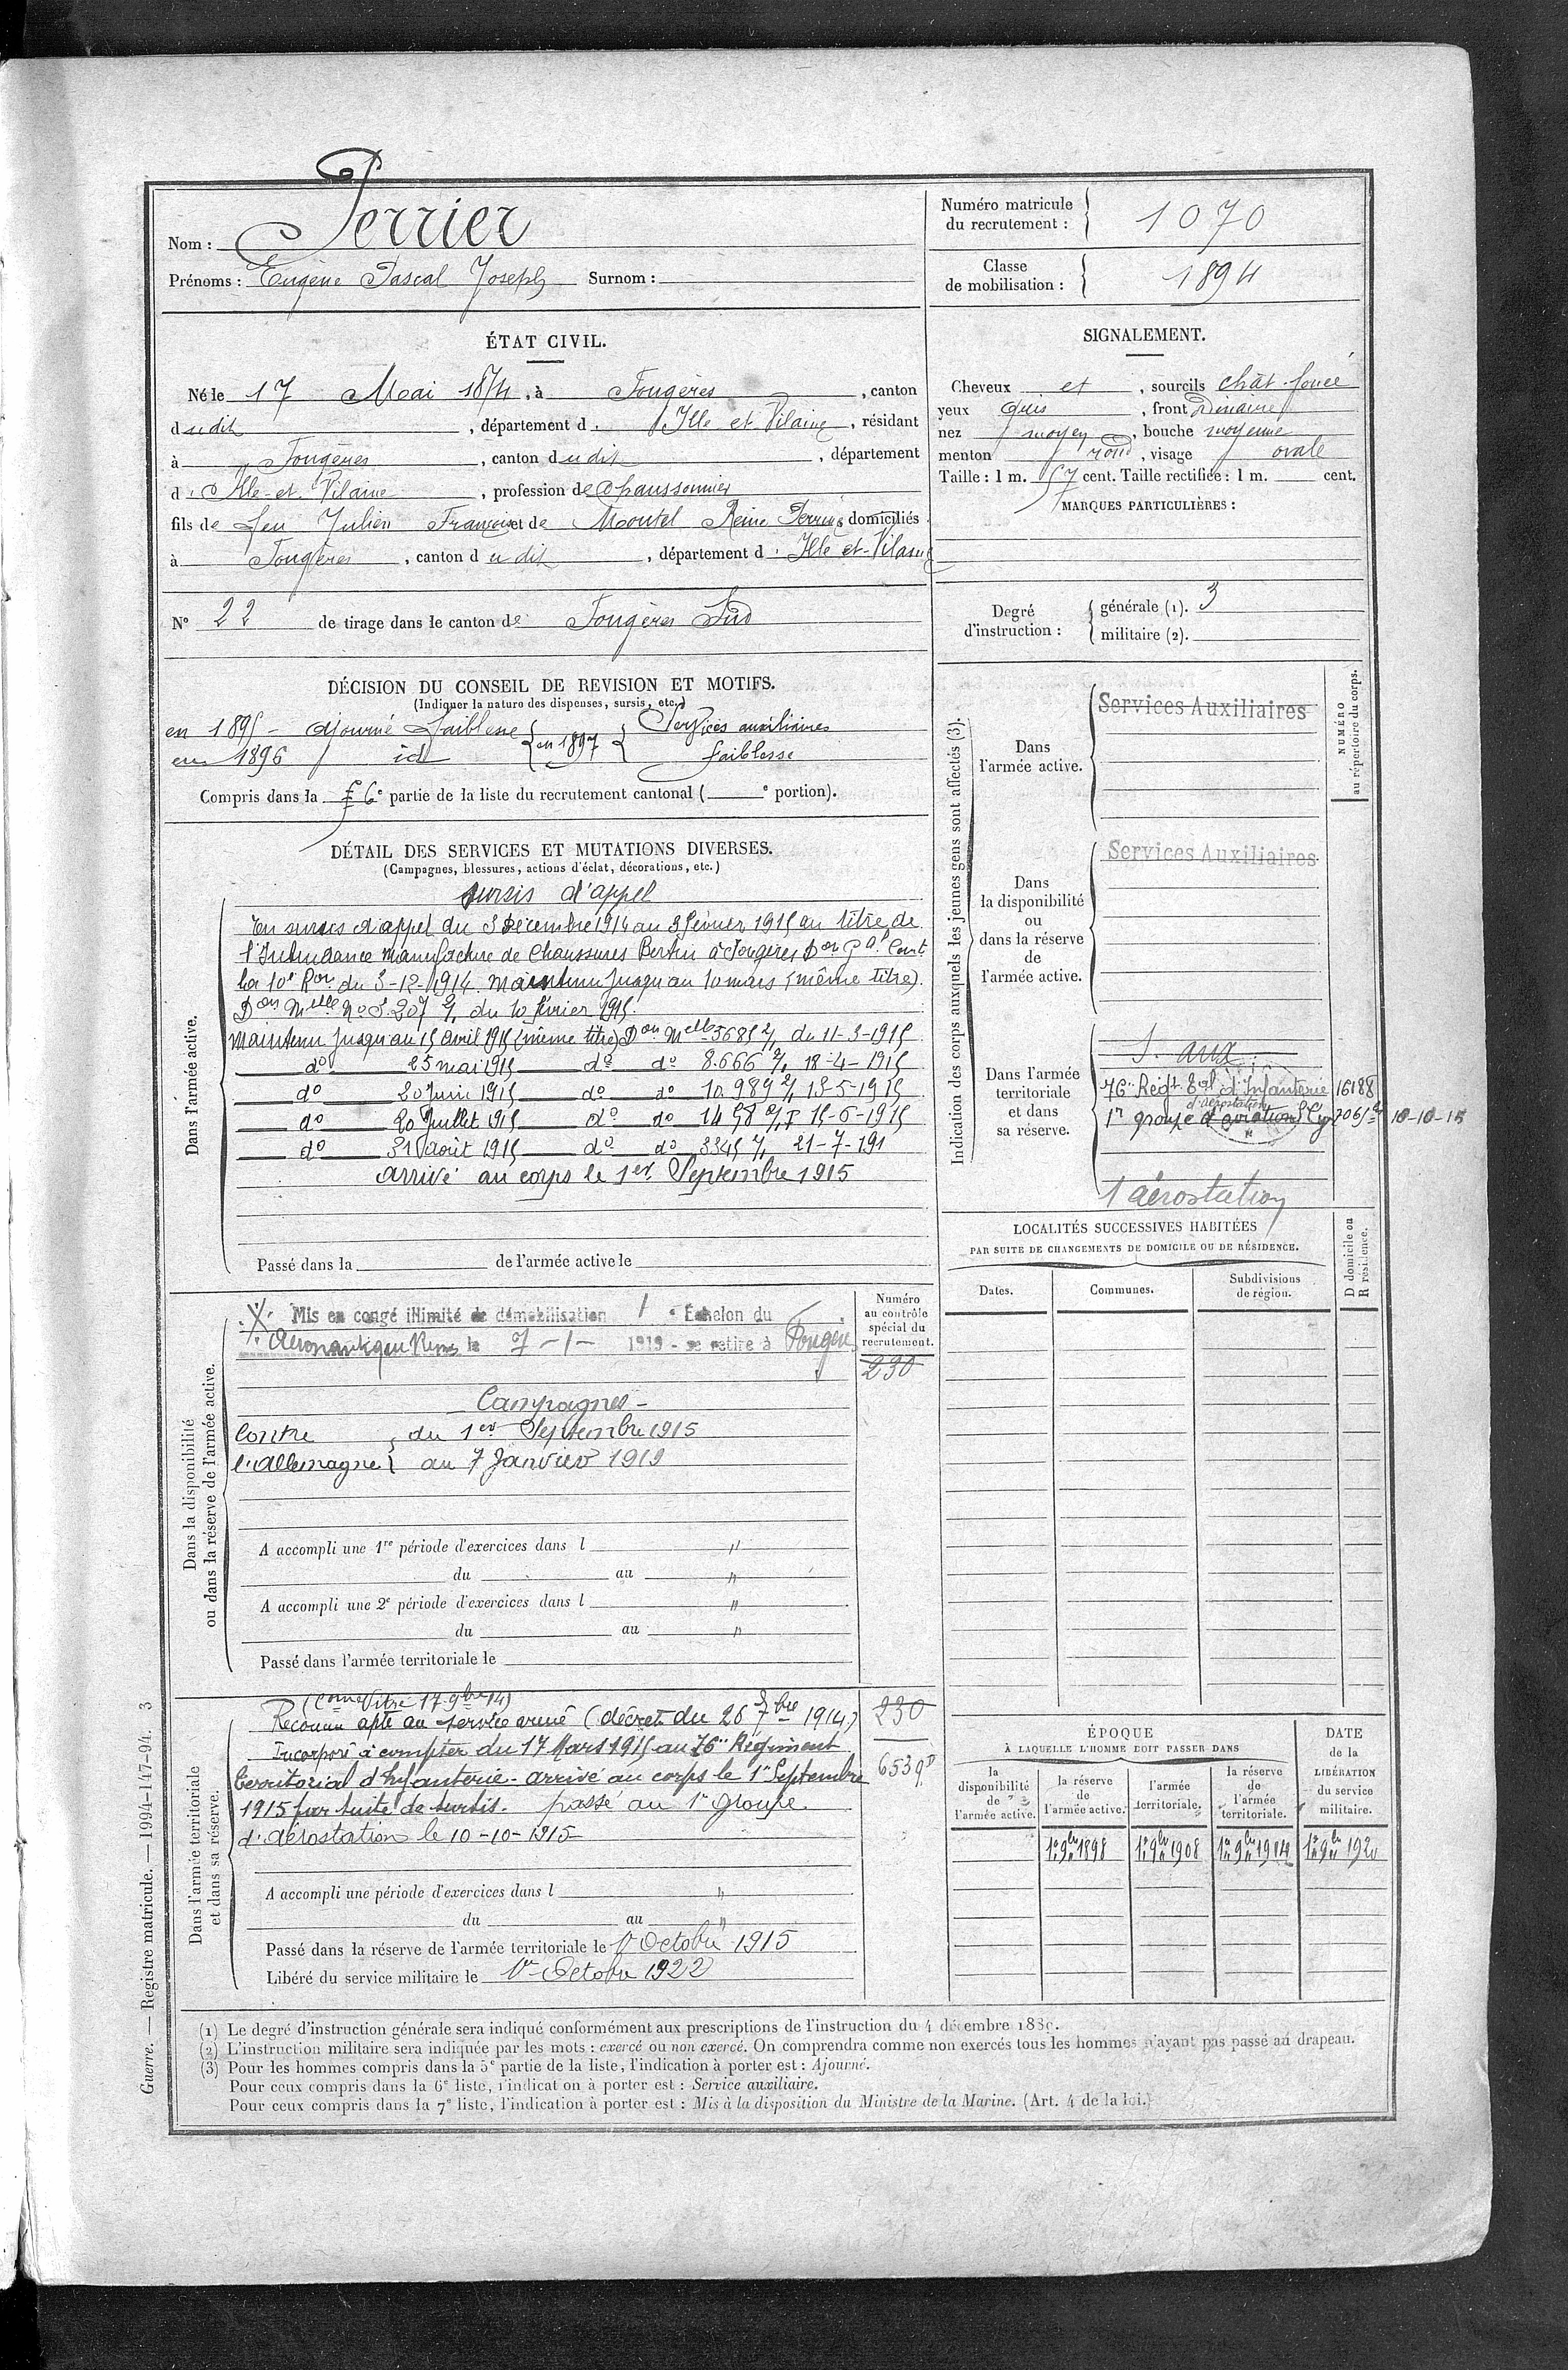 Nom : Perrier
Prénoms : Eugène Pascal Joseph Surnom :
Numéro matricule du recrutement : 1070
Classe de mobilisation : 1894
ÉTAT CIVIL.
Né le 17 Mai 1874, à Fougères, canton
dudit, département d'Ille et Vilaine, résidant
à Fougères, canton dudit, département
d'Ille-et-Vilaine, profession de Chaussonnier
fils de feu Julien François et de Montel Reine Perrine domiciliés
à Fougères, canton dudit, département d'Ille et-Vilaine
N° 22 de tirage dans le canton de Fougères Sud
SIGNALEMENT.
Cheveux et, sourcils chât-foncé
yeux Gris, front Ordinaire
nez moyen, bouche moyenne
menton rond, visage ovale
Taille : 1 m. 57 cent. Taille rectifiée : 1 m. cent.
MARQUES PARTICULIÈRES :
Degré d'instruction : générale (1). 3
militaire (2).
DÉCISION DU CONSEIL DE REVISION ET MOTIFS.
(Indiquer la nature des dispenses, sursis, etc.)
en 1895 - ajourné faiblesse } en 1897 { Services auxiliaires
en 1896 id faiblesse
Compris dans la 6e partie de la liste du recrutement cantonal ( e portion).
DÉTAIL DES SERVICES ET MUTATIONS DIVERSES.
(Campagnes, blessures, actions d'éclat, décorations, etc.)
Dans l'armée active.
sursis d'appel
En sursis d'appel du 3 Décembre 1914 au 3 février 1915 au titre de
l'Intendance Manufacture de Chaussures Bertin à Fougères Don Gal Comt
la 10e Ron du 3-12-1914. Maintenu jusqu'au 10 mars (même titre).
Don Melle No 5.207 2/ du 10 février 1915.
Maintenu jusqu'au 15 avril 1915 (même titre) Don Melle 5685 2/ du 11-3-1915
do 25 mai 1915 do do 8.666 2/ 18-4-1915
do 20 Juin 1915 do do 10.989 2/ 13-5-1915
do 20 Juillet 1915 do do 1458 2/ 15-6-1915
do 31 août 1915 do do 3345 2/ 21-7-191
arrivé au corps le 1er Septembre 1915
Passé dans la de l'armée active le
Indication des corps auxquels les jeunes gens sont affectés (3).
NUMÉRO au répertoire du corps.
Dans l'armée active.
Services Auxiliaires
Dans la disponibilité ou dans la réserve de l'armée active.
Services Auxiliaires
Dans l'armée territoriale et dans sa réserve.
S. aux.
76e Régt Tal d'Infanterie 16188
d'aérostation
1er groupe d'aviation St Cyr 10-10-15
1 aérostation
LOCALITÉS SUCCESSIVES HABITÉES
PAR SUITE DE CHANGEMENTS DE DOMICILE OU DE RÉSIDENCE.
Dates. Communes. Subdivisions de région. D domicile ou R résidence.
Dans la disponibilité ou dans la réserve de l'armée active.
Mis en congé illimité de démobilisation 1 Echelon du
Aéronautique Rennes le 7-1- 1919 - se retire à Fougères
Numéro au contrôle spécial du recrutement.
230
Campagnes -
Contre } du 1er Septembre 1915
l'Allemagne } au 7 Janvier 1919
A accompli une 1re période d'exercices dans l "
du au "
A accompli une 2e période d'exercices dans l "
du au "
Passé dans l'armée territoriale le
Dans l'armée territoriale et dans sa réserve.
(Comon Vitré 17-9bre 14)
Reconnu apte au service armé (décret du 26 7bre 1914) 230
Incorporé à compter du 17 Mars 1915 au 76e Régiment
Territorial d'Infanterie - arrivé au corps le 1er Septembre 6539
1915 par suite de sursis. passé au 1er groupe
d'aérostation le 10-10-1915-
A accompli une période d'exercices dans l "
du au "
Passé dans la réserve de l'armée territoriale le 1er Octobre 1915
Libéré du service militaire le 1er Octobre 1922
ÉPOQUE
À LAQUELLE L'HOMME DOIT PASSER DANS
la disponibilité de l'armée active.
la réserve de l'armée active.
l'armée territoriale.
la réserve de l'armée territoriale.
DATE de la LIBÉRATION du service militaire.
1er 9bre 1898 1er 9bre 1908 1er 9bre 1914 1er 9bre 1920
(1) Le degré d'instruction générale sera indiqué conformément aux prescriptions de l'instruction du 4 décembre 1889.
(2) L'instruction militaire sera indiquée par les mots : exercé ou non exercé. On comprendra comme non exercés tous les hommes n'ayant pas passé au drapeau.
(3) Pour les hommes compris dans la 5e partie de la liste, l'indication à porter est : Ajourné.
Pour ceux compris dans la 6e liste, l'indication à porter est : Service auxiliaire.
Pour ceux compris dans la 7e liste, l'indication à porter est : Mis à la disposition du Ministre de la Marine. (Art. 4 de la loi.)
Guerre. — Registre matricule. — 1994-147-94. 3